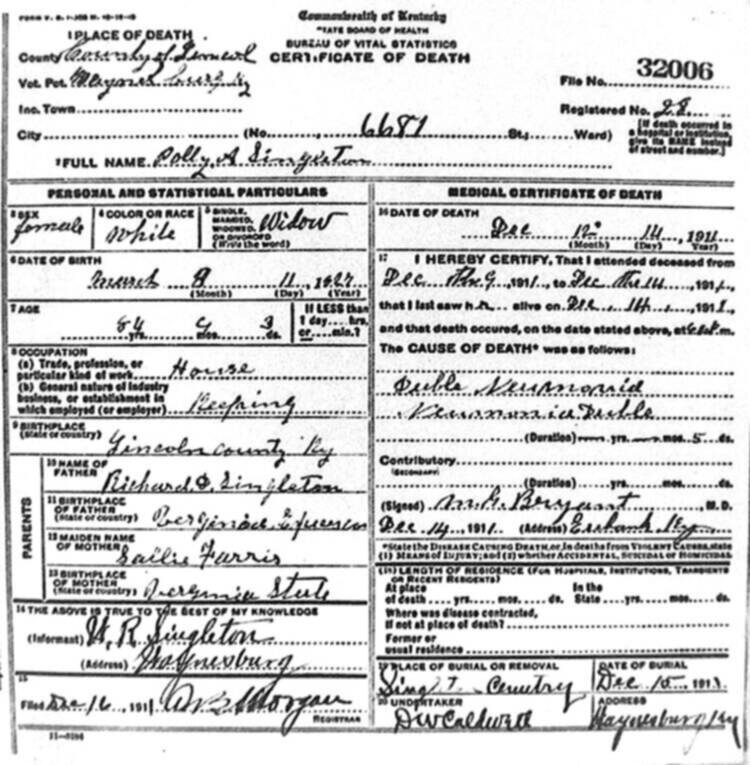 FORM V. S. 1
Commonwealth of Kentucky
STATE BOARD OF HEALTH
BUREAU OF VITAL STATISTICS
CERTIFICATE OF DEATH
1 PLACE OF DEATH
County County of
Vot. Pct.
Inc. Town
City (No. 6681 St.; Ward)
File No. 32006
Registered No. 28
[If death occurred in a hospital or institution, give its NAME instead of street and number.]
2 FULL NAME Polly A Singleton
PERSONAL AND STATISTICAL PARTICULARS
3 SEX female
4 COLOR OR RACE White
5 SINGLE, MARRIED, WIDOWED, OR DIVORCED (Write the word) Widow
6 DATE OF BIRTH
March 8 11 1827
(Month) (Day) (Year)
7 AGE
84 yrs. 9 mos. 3 ds.
If LESS than 1 day....hrs. or....min.?
8 OCCUPATION
(a) Trade, profession, or particular kind of work House
(b) General nature of industry business, or establishment in which employed (or employer) Keeping
9 BIRTHPLACE
(State or country) Lincoln county Ky
PARENTS
10 NAME OF FATHER
Richard D. Singleton
11 BIRTHPLACE OF FATHER
(State or country)
12 MAIDEN NAME OF MOTHER
Sailie Farris
13 BIRTHPLACE OF MOTHER
(State or country) Verginia State
14 THE ABOVE IS TRUE TO THE BEST OF MY KNOWLEDGE
(Informant) W. R. Singleton
(Address) Waynesburg
15
Filed Dec 16, 1911 Morgan
REGISTRAR
MEDICAL CERTIFICATE OF DEATH
16 DATE OF DEATH
Dec 12 14 1911
(Month) (Day) (Year)
17 I HEREBY CERTIFY, That I attended deceased from
Dec The 9, 1911, to Dec The 14, 1911,
that I last saw her alive on Dec, 14, 1911,
and that death occured, on the date stated above, at m.
The CAUSE OF DEATH* was as follows:
Duble Neumonia
Neumonia Duble
(Duration) yrs. mos. 5 ds.
Contributory
(SECONDARY)
(Duration) yrs. mos. ds.
(Signed) M. G. Bryant, M. D.
Dec 14 1911. (Address) Eubank Ky
*State the DISEASE CAUSING DEATH, or, in deaths from VIOLENT CAUSES, state (1) MEANS OF INJURY; and (2) whether ACCIDENTAL, SUICIDAL or HOMICIDAL.
18 LENGTH OF RESIDENCE (FOR HOSPITALS, INSTITUTIONS, TRANSIENTS OR RECENT RESIDENTS)
At place of death yrs. mos. ds. In the State yrs. mos. ds.
Where was disease contracted, If not at place of death?
Former or usual residence
19 PLACE OF BURIAL OR REMOVAL
Cemetry
DATE OF BURIAL
Dec 15, 1911.
20 UNDERTAKER
DW Caldwell
ADDRESS
Waynesburg Ky